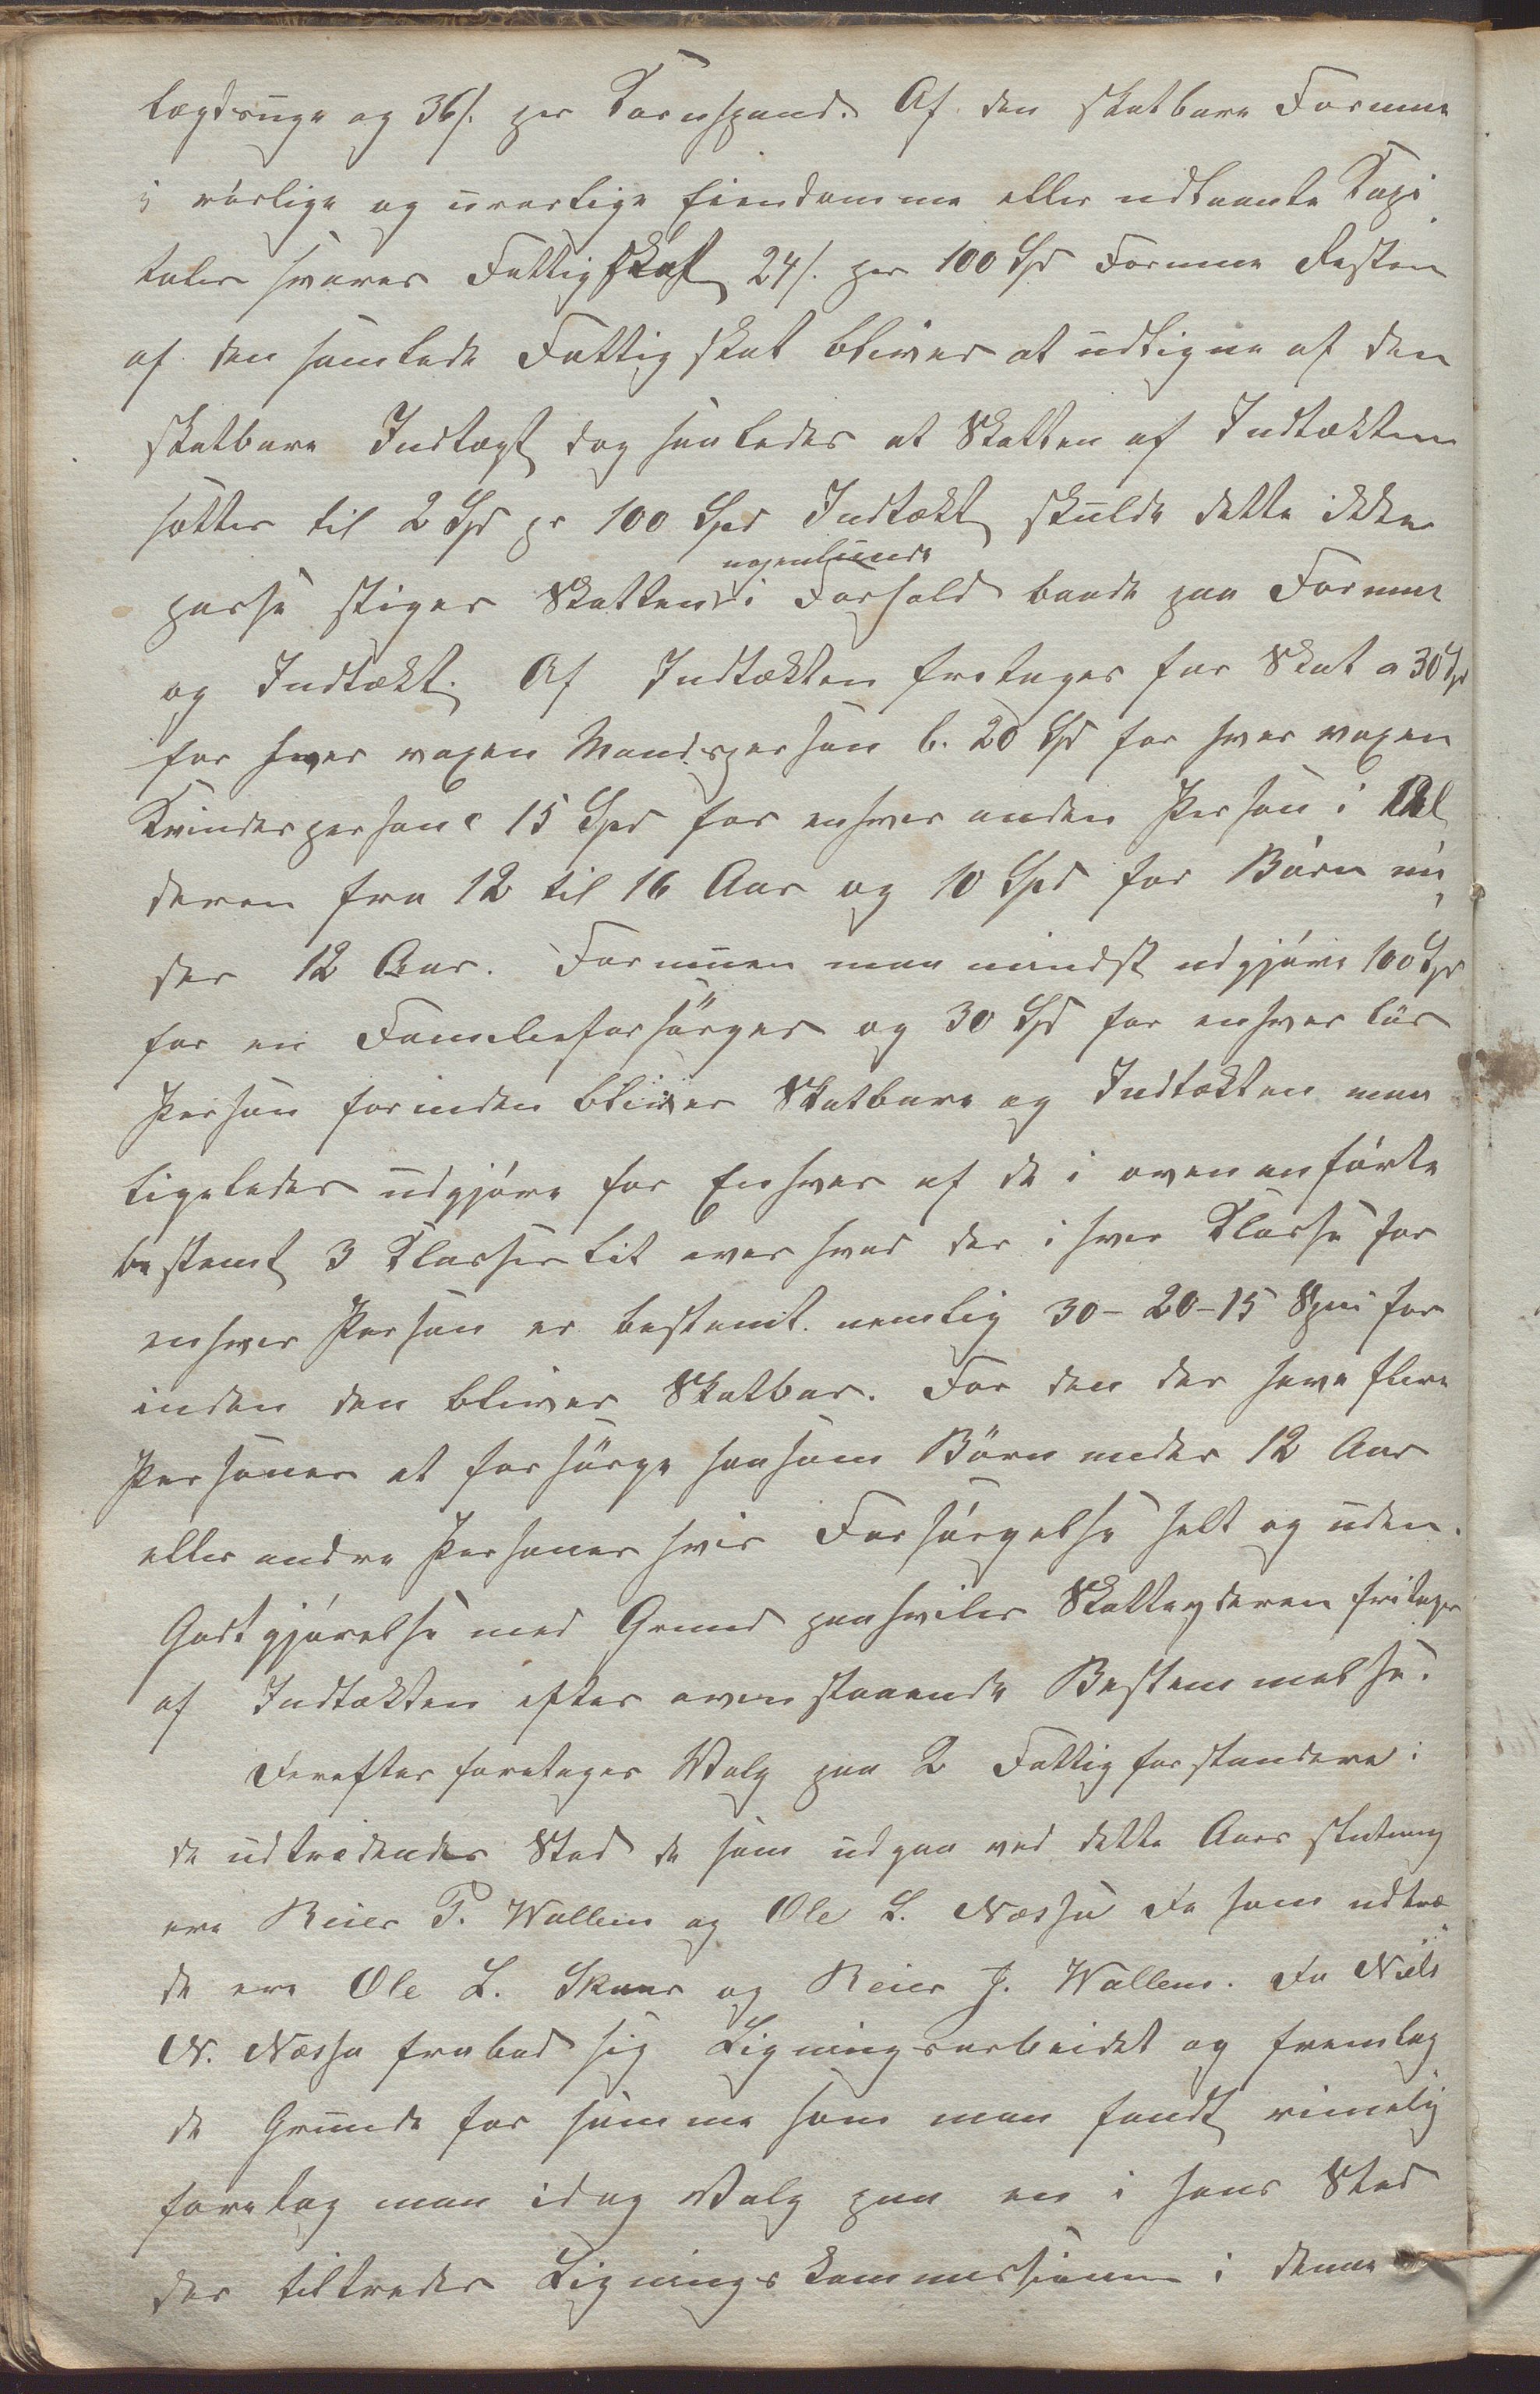 lægdsuge og 36 s. per Kornspand. Af den skatbare Formue
i rørlige og urørlige Eiendomme eller udlaante Kapi
taler svares Fattigskat 24 s. per 100 Spd Formue Resten
af den samlede Fattigskat bliver at udligne af den
skatbare Indtægt dog saaledes at Skatten af Indtækten
sættes til 2 Spd pr 100 Spd Indtækt skulde dette ikke
nogenlunde
passe stiger Skatten i Forhold baade paa Formue
og Indtækt. Af Indtækten fratages for Skat a 30 Spd
for hver voxen Mandsperson b. 20 Spd for hver voxen
Kvindesperson c 15 Spd for enhver anden Person i Al
deren fra 12 til 16 Aar og 10 Spd for Børn un
der 12 Aar. Formuen maa mindst udgjøre 100 Spd
for en Familieforsørger og 30 Spd for enhver løs
Person forinden bliver Skatbare og Indtækten maa
ligeledes udgjøre for Enhver af de i ovenanførte
bestemt 3 Klasser lit over hvad der i hver Klasse for
enhver Person er bestemt nemlig 30-20-15 Spd for
inden den bliver Skatbar. For den der have flere
Personer at forsørge saasom Børn under 12 Aar
eller andre Personer hvis Forsørgelse helt og uden
Godtgjørelse med Grund paahviler Skatteyderen fritages
af Indtækten efter ovenstaaende Bestemmelse.
Derefter foretages Valg paa 2 Fattigforstandere i
de udtrædendes Sted de som udgaa ved dette Aars slutning
ere Reier P. Wallem og Ole L. Næsse De som udtræ
de ere Ole L. Skaar og Reier J. Wallem. Da Niels
N. Næsse frabad sig Ligningsarbeidet og fremlag
de Grunde for samme som man fandt rimelig
foretog man idag Valg paa en i hans Sted
der tiltræder Ligningskommissionen i denne